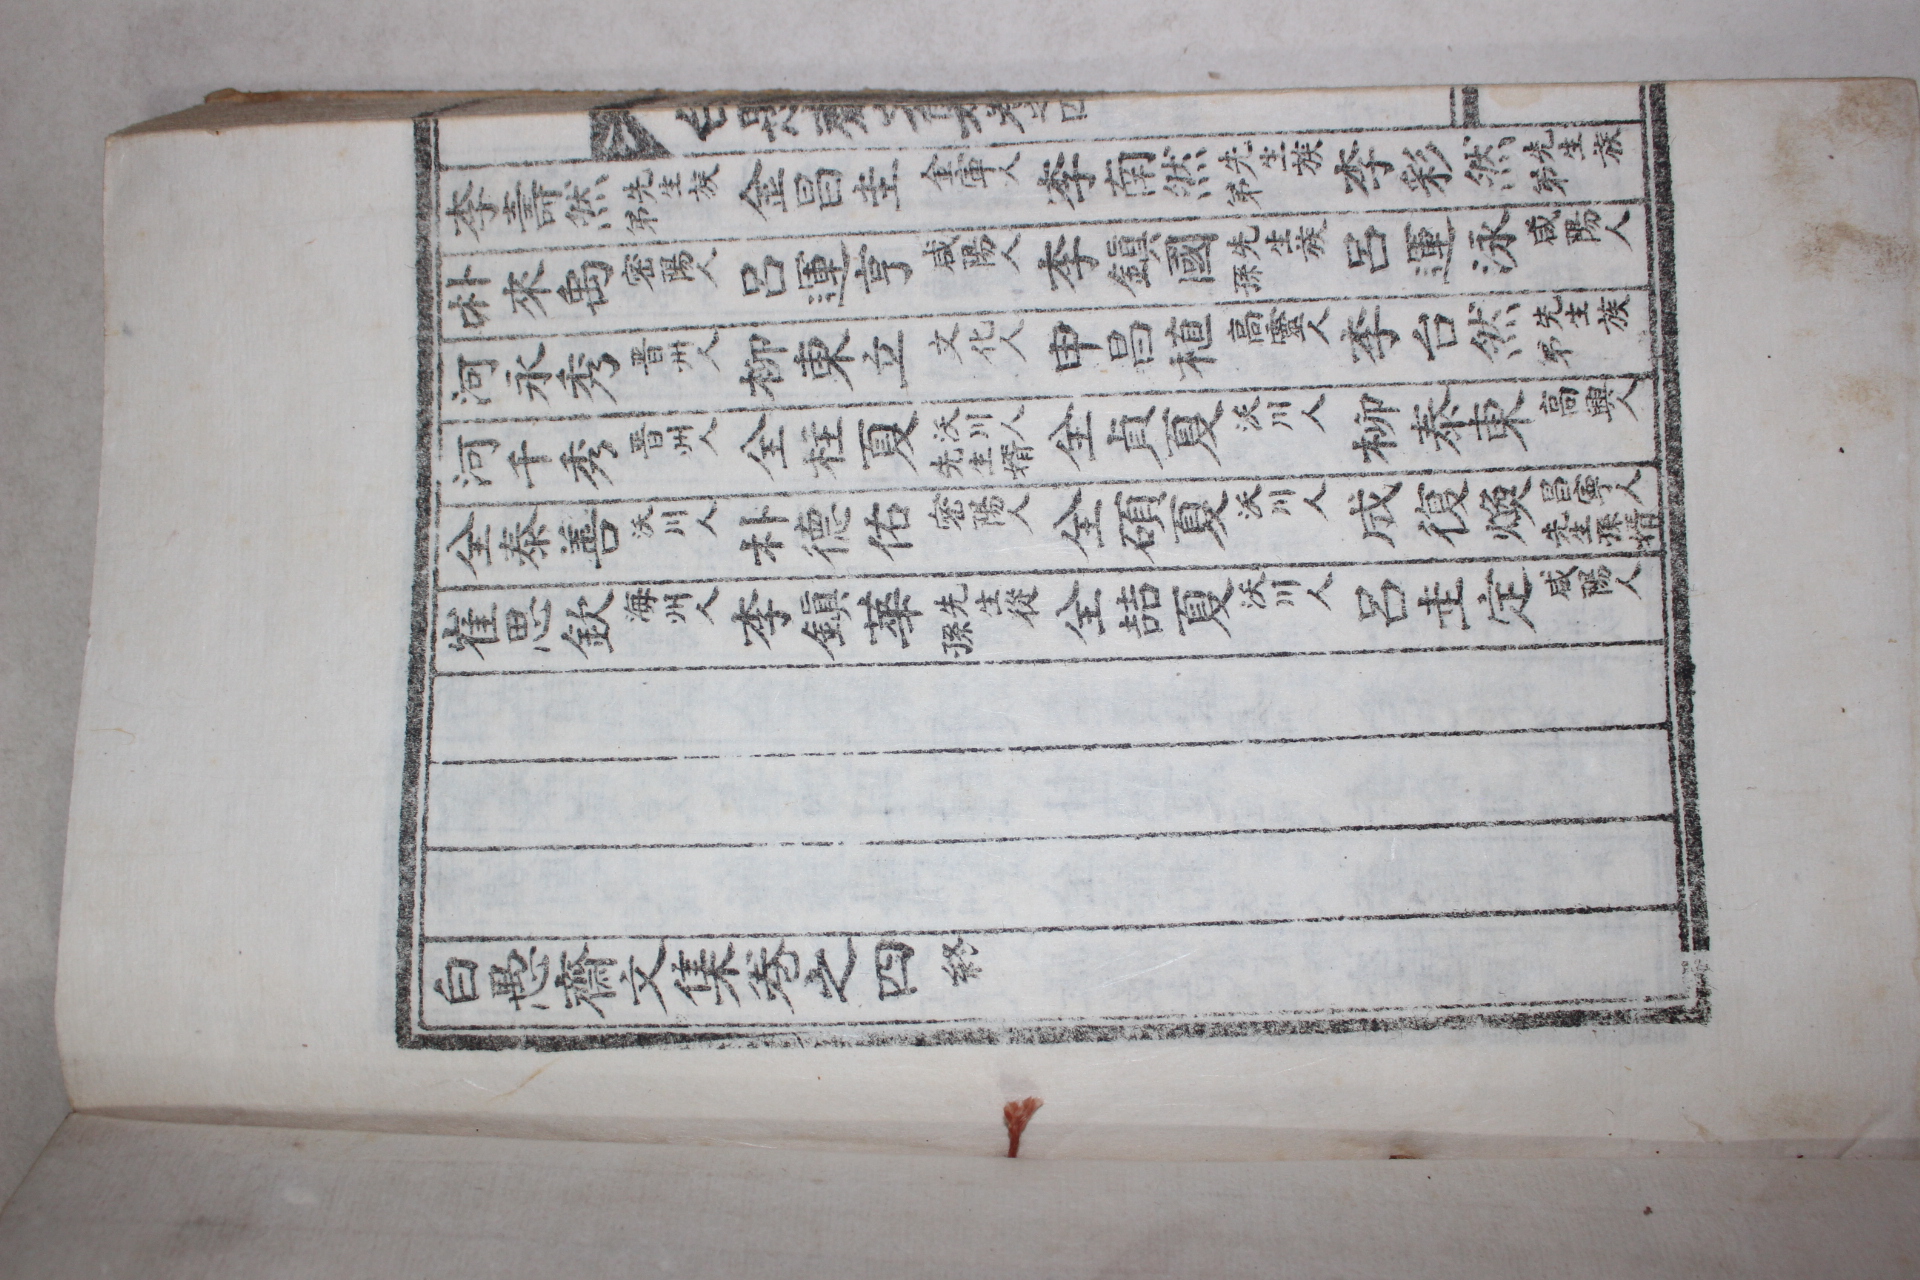 白愚齋文集卷之四
李壽然 先生族弟 金昌圭 金寧人 李南然 先生族弟 李彩然 先生族弟
朴來禹 密陽人 呂運亨 咸陽人 李鎭國 先生族孫 呂運泳 咸陽人
河永秀 晋州人 柳東立 文化人 申昌植 高靈人 李台然 先生族弟
河千秀 晋州人 全柱夏 沃川人先生壻 全貞夏 沃川人 柳泰東 高興人
全泰善 沃川人 朴德佑 密陽人 全碩夏 沃川人 成復煥 昌寧人先生孫壻
崔思欽 海州人 李鎭華 先生從孫 全喆夏 沃川人 呂圭定 咸陽人
白愚齋文集卷之四 終